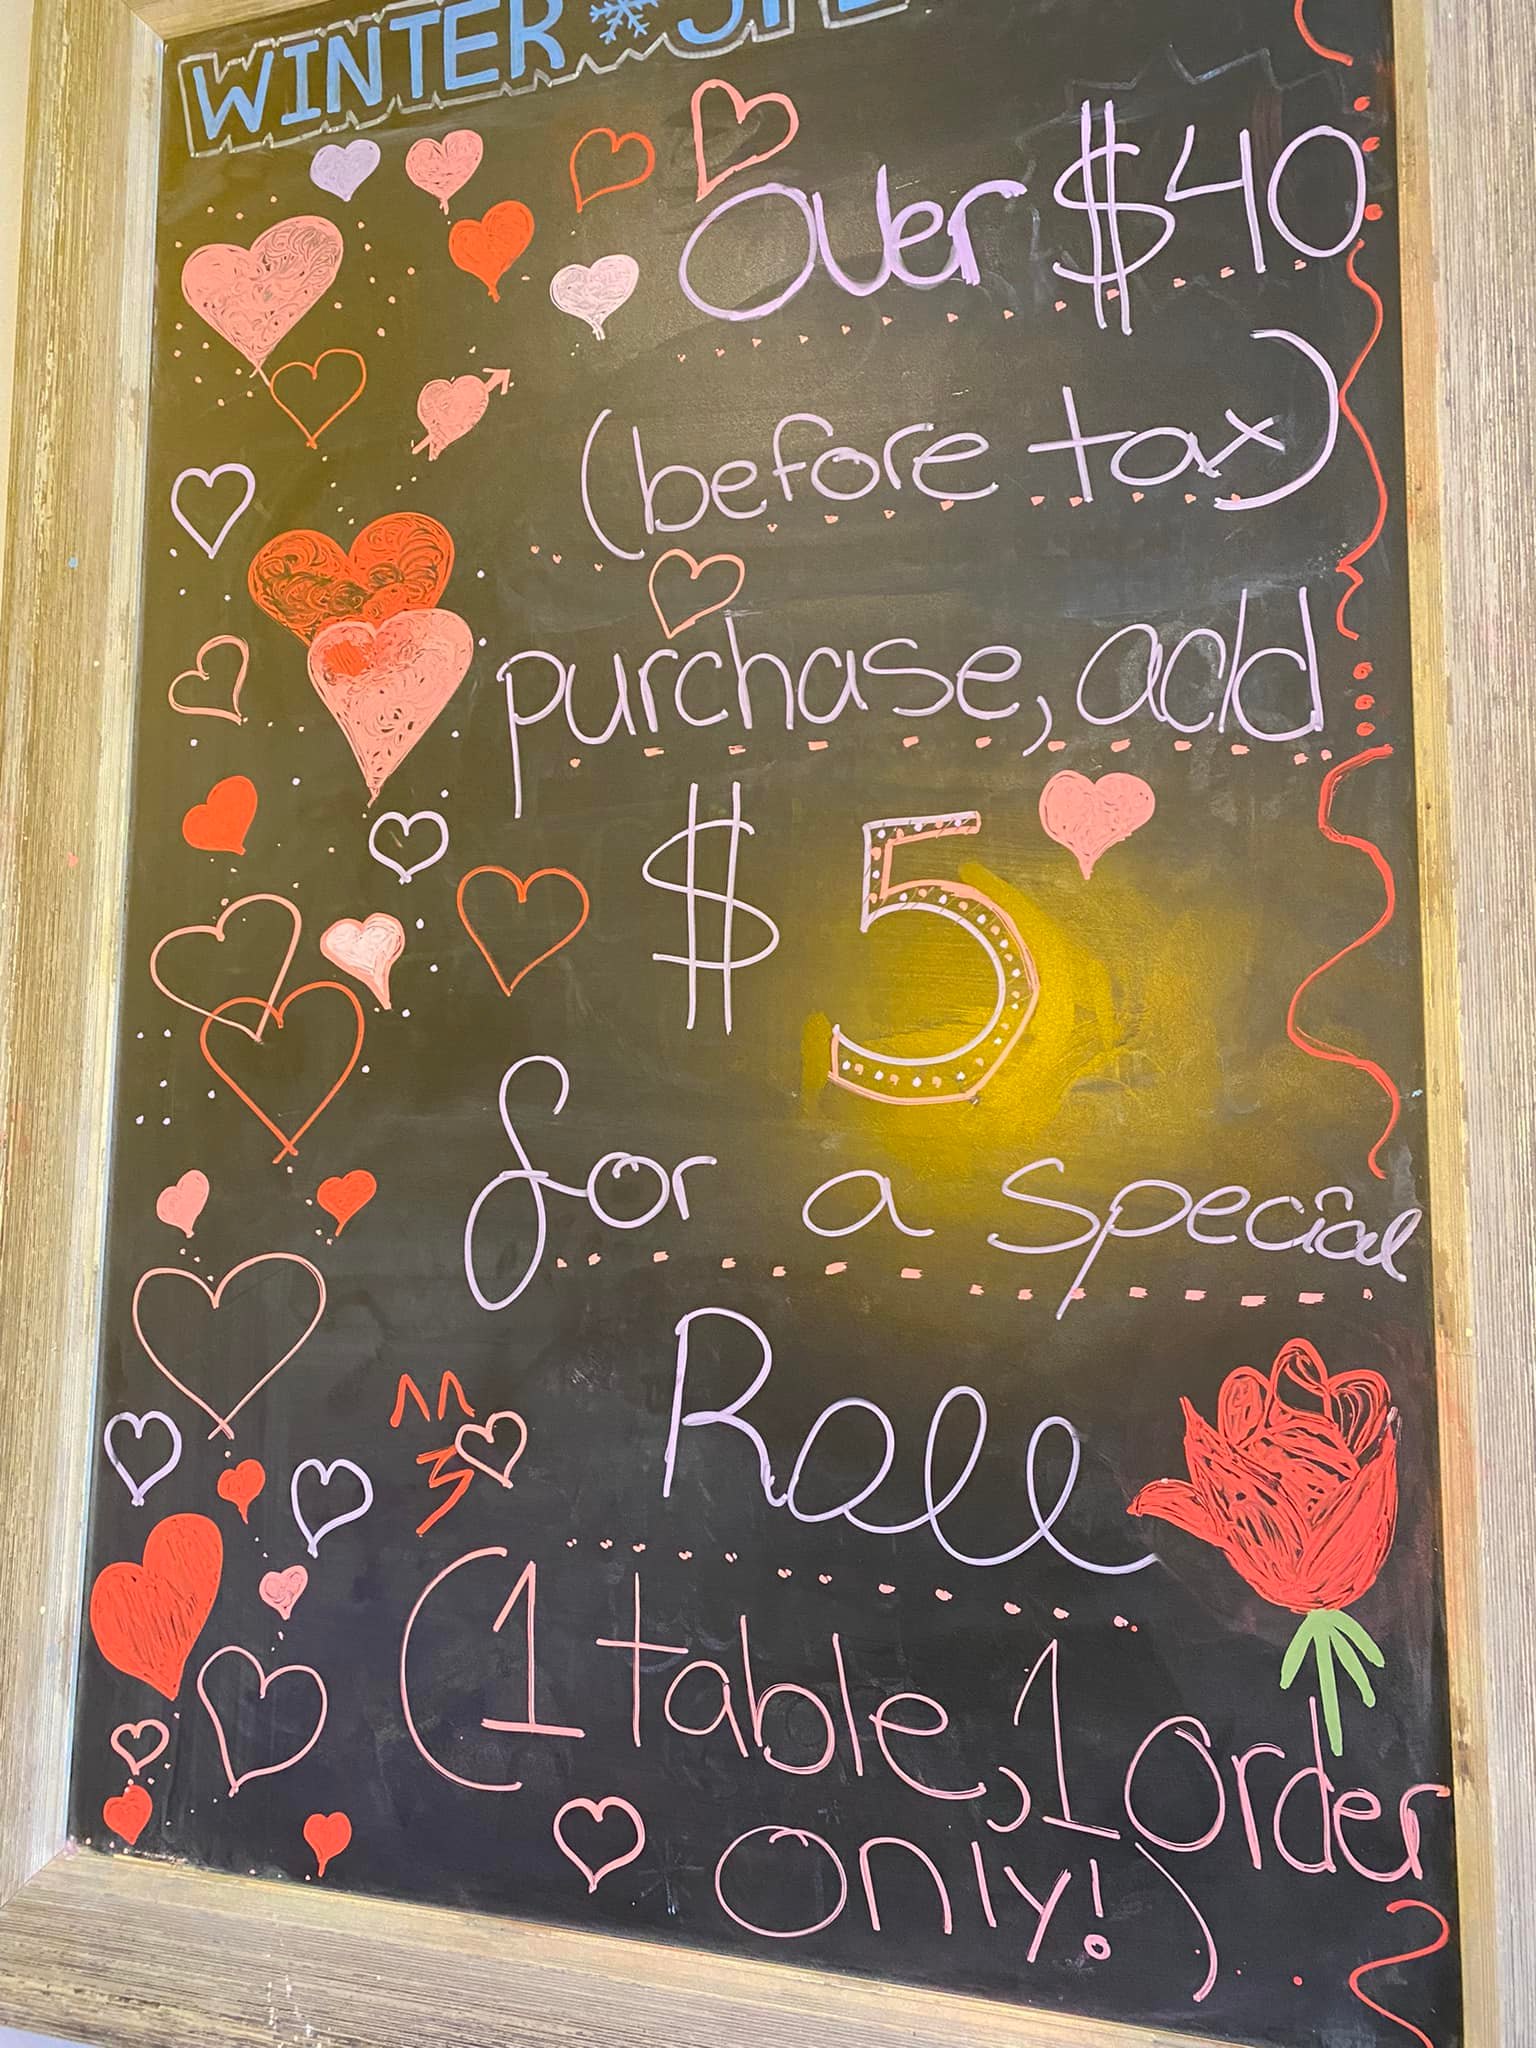 WINTER
Over $40
(before tax)
purchase, add
$5
for a special
Roll
(1 table, 1 order
only!)